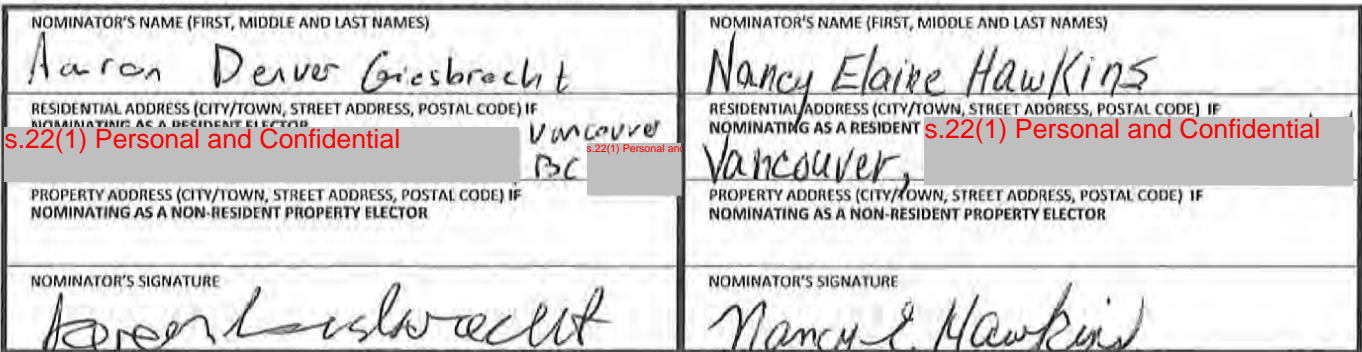 NOMINATOR'S NAME (FIRST, MIDDLE AND LAST NAMES)
Aaron Denver Giesbrecht
RESIDENTIAL ADDRESS (CITY/TOWN, STREET ADDRESS, POSTAL CODE) IF
NOMINATING AS A RESIDENT ELECTOR
s.22(1) Personal and Confidential
Vancouver
BC
s.22(1) Personal and
PROPERTY ADDRESS (CITY/TOWN, STREET ADDRESS, POSTAL CODE) IF
NOMINATING AS A NON-RESIDENT PROPERTY ELECTOR
NOMINATOR'S SIGNATURE
NOMINATOR'S NAME (FIRST, MIDDLE AND LAST NAMES)
Nancy Elaine Hawkins
RESIDENTIAL ADDRESS (CITY/TOWN, STREET ADDRESS, POSTAL CODE) IF
NOMINATING AS A RESIDENT
s.22(1) Personal and Confidential
Vancouver,
PROPERTY ADDRESS (CITY/TOWN, STREET ADDRESS, POSTAL CODE) IF
NOMINATING AS A NON-RESIDENT PROPERTY ELECTOR
NOMINATOR'S SIGNATURE
Nancy E. Hawkins